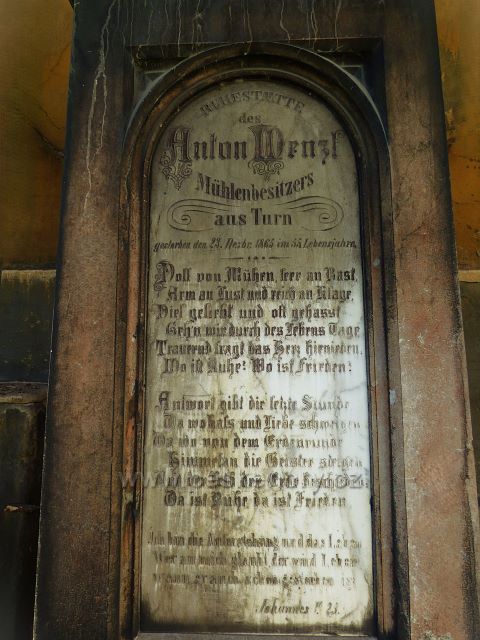 RUHESTÆTTE
des
Anton Wenzl
Mühlenbesitzers
aus Turn
gestorben den 23. Dezbr. 1865 im 55 Lebensjahre.
Voll von Mühen, leer an Rast,
Arm an Lust und reich an Klage,
Viel geliebt und oft gehasst
Geh'n wir durch des Lebens Tage
Trauernd fragt das Herz hienieden,
Wo ist Ruhe? Wo ist Frieden?
Antwort gibt die letzte Stunde
Da wo und Liebe schweigen
Da wo von dem Erdenrunde
Himmelan die Geister steigen
der Erde
Da ist Ruhe da ist Frieden.
Ich bin die Auferstehung und das Leben
Wer an mich glaubt der wird Leben
wenn er auch schon gestorben ist
Johannes 25.